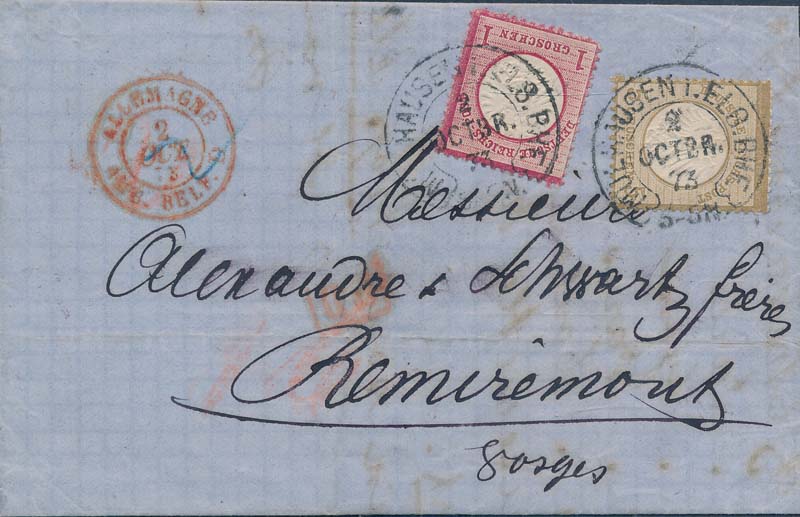 ALLEMAGNE
2
OCT
73
AMB. BELF.
1 GROSCHEN 1
DEUTSCHE REICHS-POST
HAUSEN
OCTBR.
MUELHAUSEN I. ELS. BHF.
2
OCTBR.
73
Messieurs
Alexandre & Schwartz frères
Remiremont
Vosges